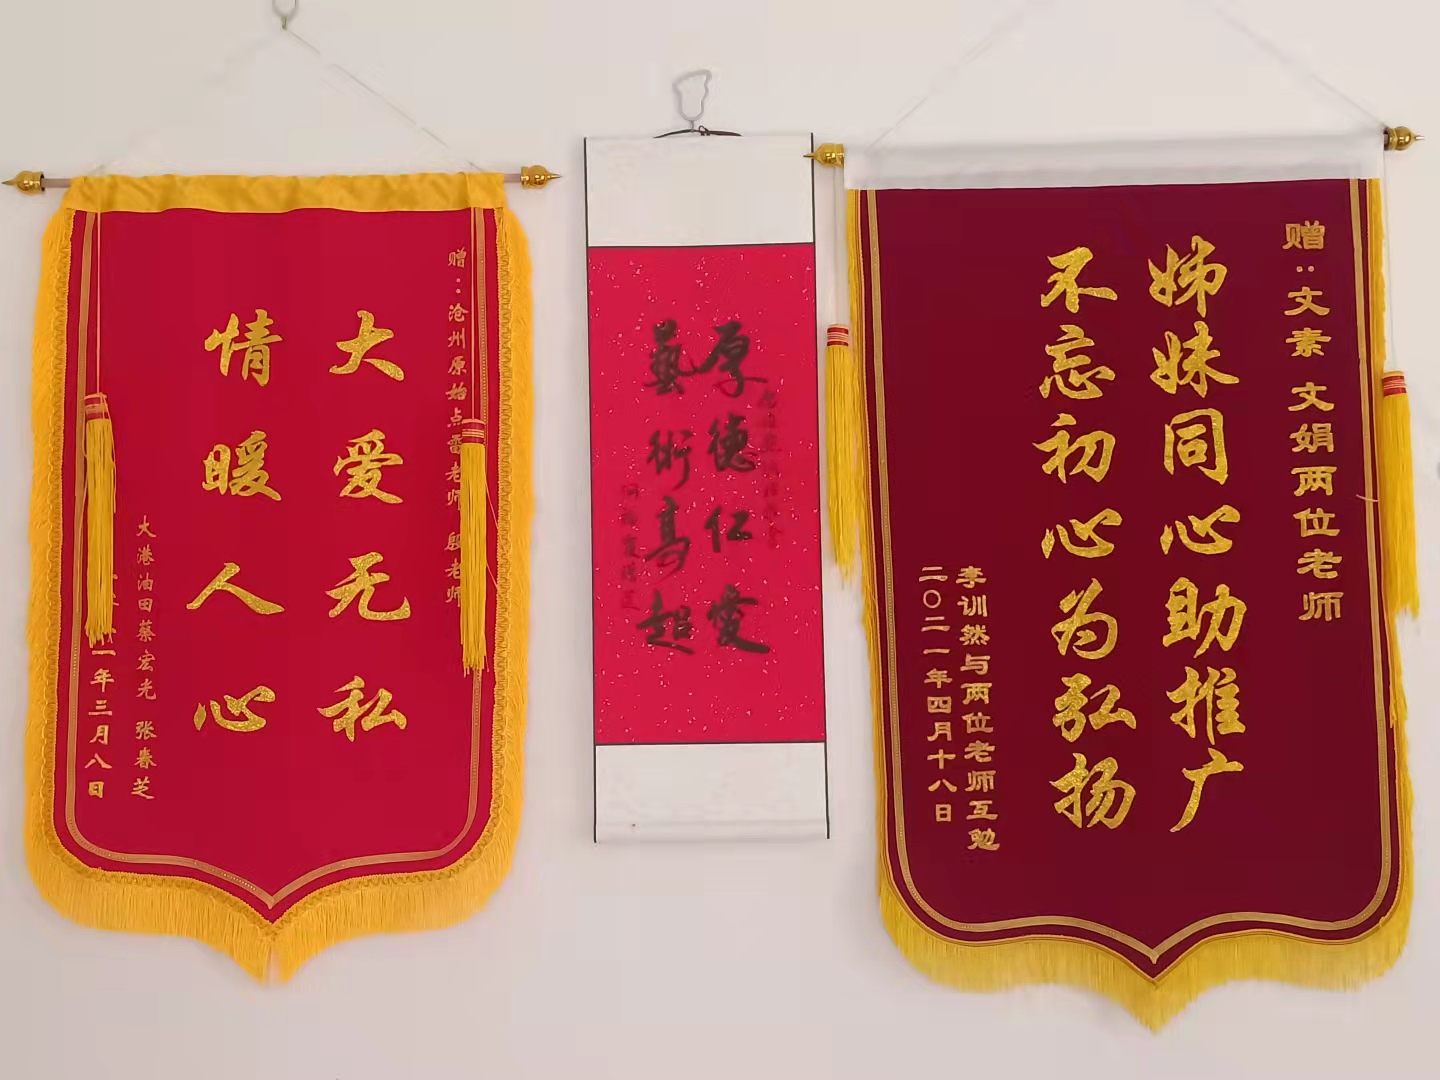 赠：沧州原始点雷老师 殷老师
大爱无私
情暖人心
大港油田蔡宏光 张春芝
一年三月八日
厚德仁愛
藝術高超
赠：文素 文娟两位老师
姊妹同心助推广
不忘初心为弘扬
李训然与两位老师互勉
二〇二一年四月十八日